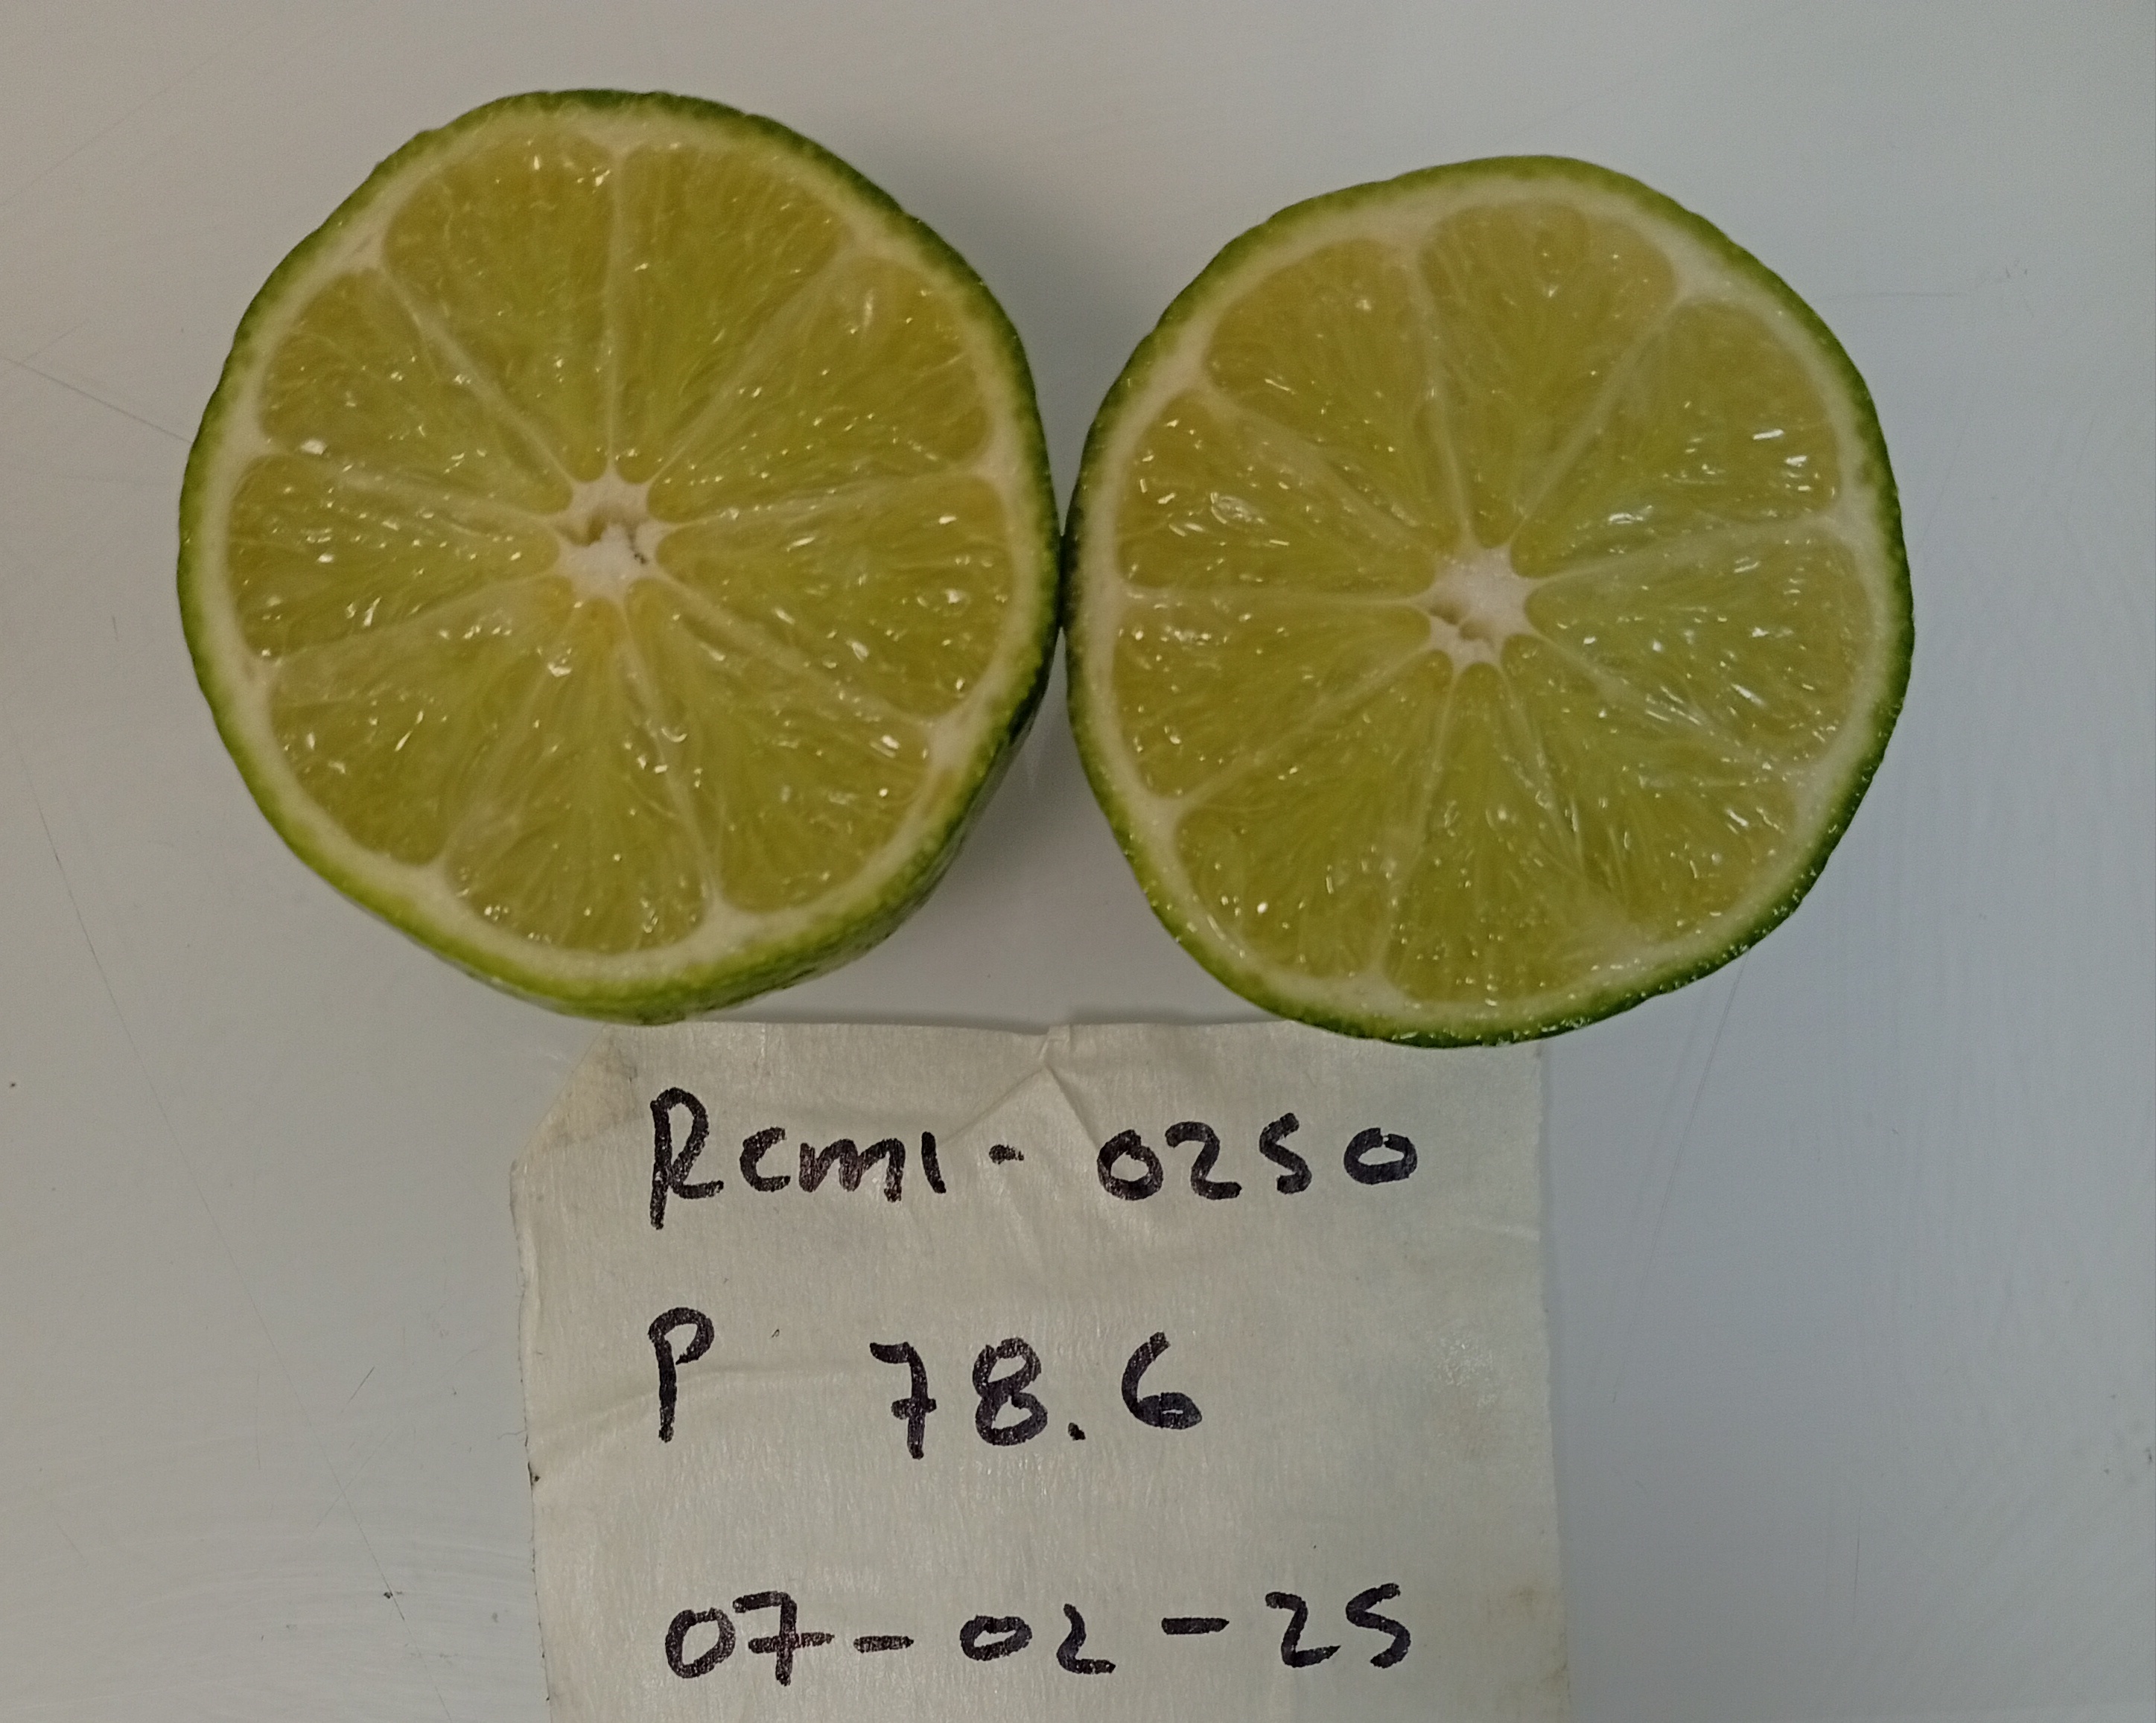 Rcml - 0250
P 78.6
07-02-25